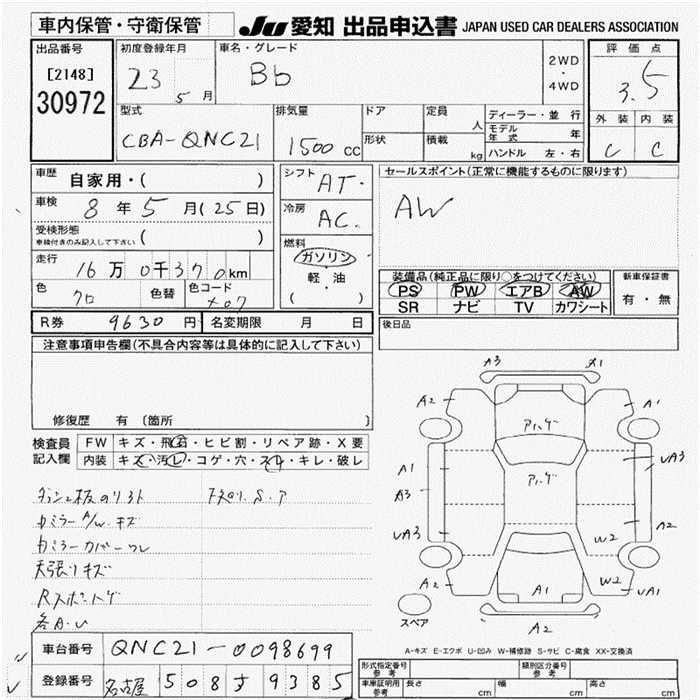 車内保管・守衛保管
JU 愛知 出品申込書 JAPAN USED CAR DEALERS ASSOCIATION
出品番号
[2148]
30972
初度登録年月
23 5 月
車名・グレード
Bb
2WD
・
4WD
評価点
3.5
外装 内装
C C
型式
CBA-QNC21
排気量
1500 cc
ドア
形状
定員 人
積載 kg
ディーラー・並行
モデル年式 年
ハンドル 左・右
車歴
自家用・( )
車検
8 年 5 月 (25日)
受検形態
車検付きのみ記入して下さい ( )
走行
16万0千370km
色
クロ
色替
色コード
X07
シフト
AT・
冷房
AC.
燃料
ガソリン
軽・油
( )
セールスポイント(正常に機能するものに限ります)
AW
装備品(純正品に限り○をつけてください)
PS PW エアB AW
SR ナビ TV カワシート
新車保証書
有・無
R券 9630 円
名変期限 月 日
後日品
注意事項申告欄(不具合内容等は具体的に記入して下さい)
修復歴 有 〔箇所 〕
検査員
記入欄
FW キズ・飛石・ヒビ割・リペア跡・X要
内装 キズ・汚レ・コゲ・穴・スレ・キレ・破レ
カミラーA/W キズ
カミラーカバーワレ
天張りキズ
各A・U
A3 X1
A2 A1
A1
A3
UA3
UA3
A2
W2
W2
A2
UA1
A1
A2
スペア
A-キズ E-エクボ U-凹み W-補修跡 S-サビ C-腐食 XX-交換済
車台番号 QNC21-0098699
登録番号 名古屋 508 す 9385
形式指定番号
参考
類別区分番号
参考
車庫証明用
参考
長さ cm
幅 cm
高さ cm